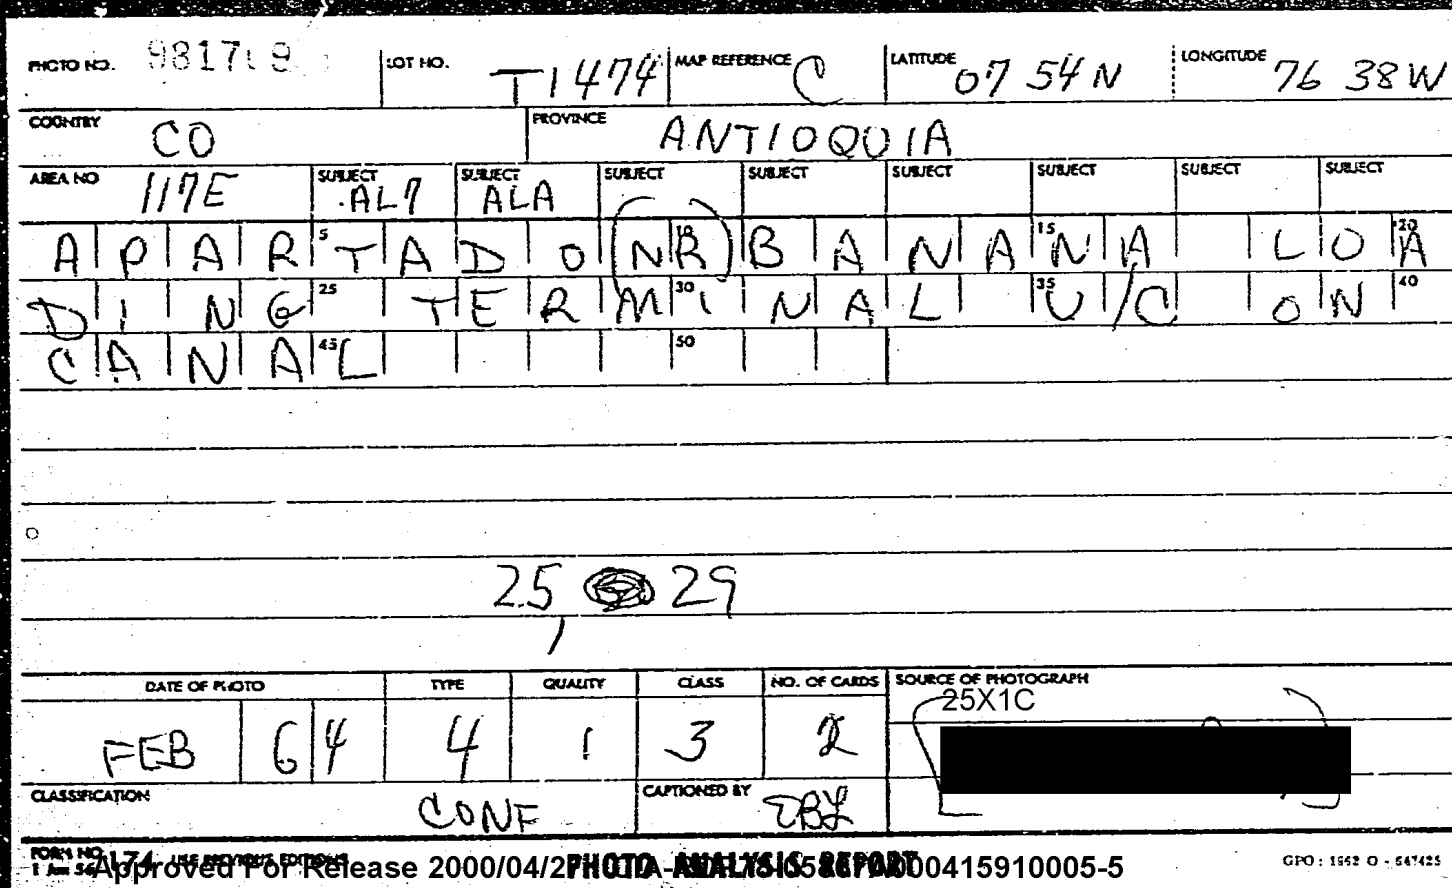 PHOTO NO. LOT NO. T1474 MAP REFERENCE C LATITUDE 07 54 N LONGITUDE 76 38 W
COUNTRY CO PROVINCE ANTIOQUIA
AREA NO 117E SUBJECT AL7 SUBJECT ALA SUBJECT SUBJECT SUBJECT SUBJECT SUBJECT SUBJECT
APARTADO (NR) BANANA LOA
DING TERMINAL U/C ON
CANAL
25 29
DATE OF PHOTO TYPE QUALITY CLASS NO. OF CARDS SOURCE OF PHOTOGRAPH
25X1C
FEB 64 4 1 3 2
CLASSIFICATION CONF CAPTIONED BY
FORM NO. 1174 USE PREVIOUS EDITIONS PHOTO ANALYSIS REPORT GPO: 1962 O - 647425
1 Jun 54
Approved For Release 2000/04/ 000415910005-5